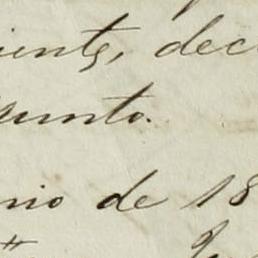 iente, dec
sunto.
nio de 18